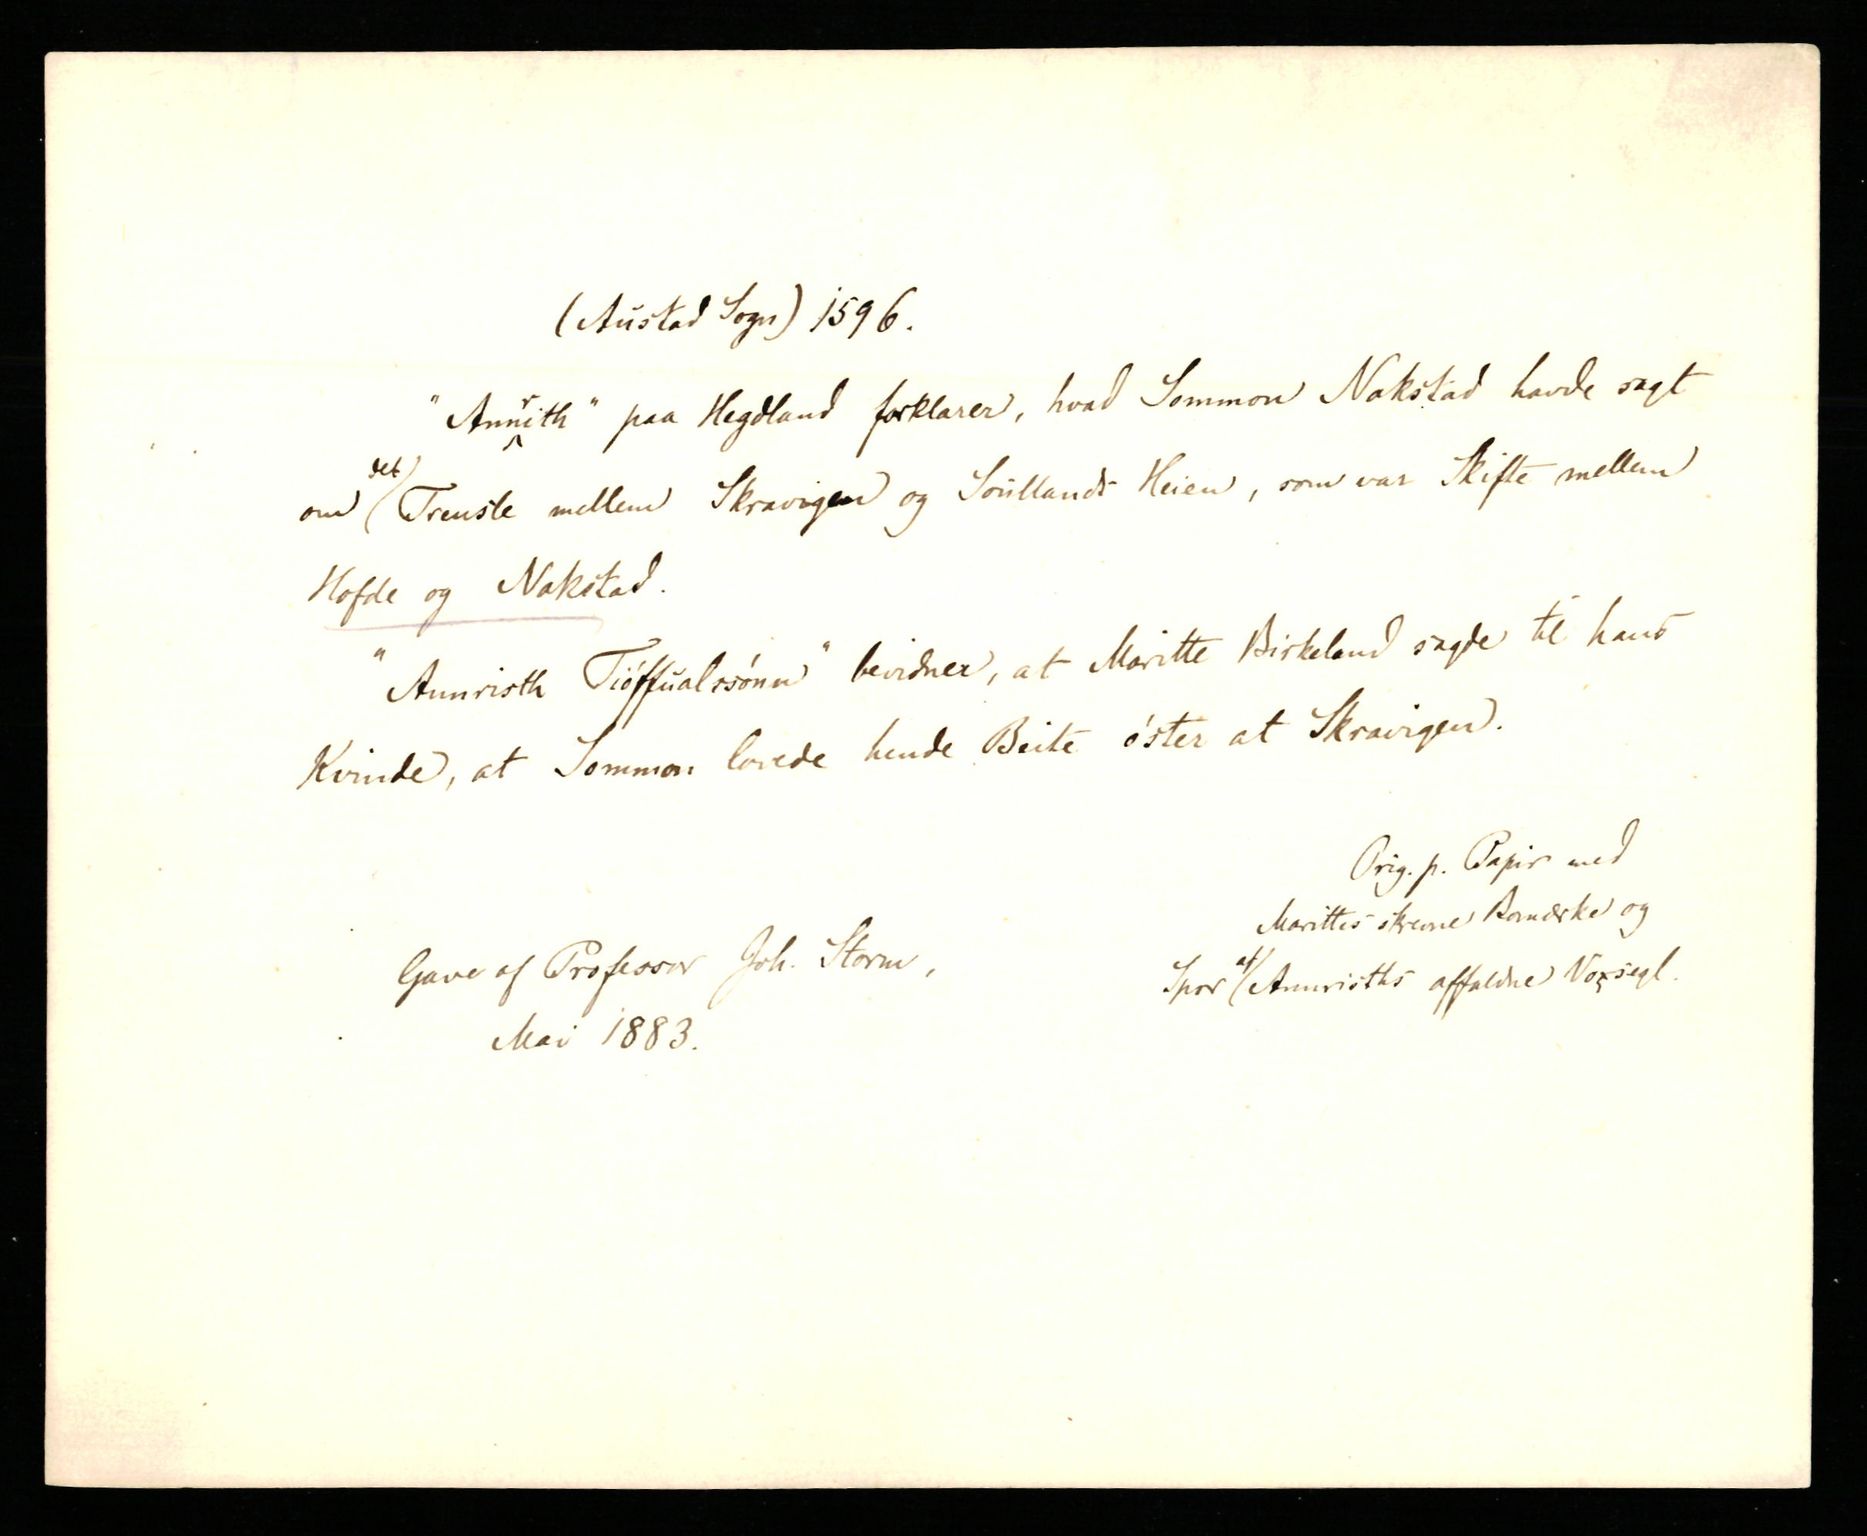 (Austad Sogn) 1596.
"Annrith" paa Hegdland forklarer, hvad Sommon Nakstad havde sagt
om det Treuste mellem Skravigen og Soullands Heien, som var Skifte mellem
Hofde og Nakstad.
"Annristh Tiöffualssönn" bevidner, at Maritte Birkeland sagde til hans
Kvinde, at Sommon lovede hende Beite öster at Skravigen.
Orig. p. Papir med
Marittes skrevne Bomærke og
Spor af Annrisths affaldne Voxsegl.
Gave af Professor Joh. Storm,
Mai 1883.